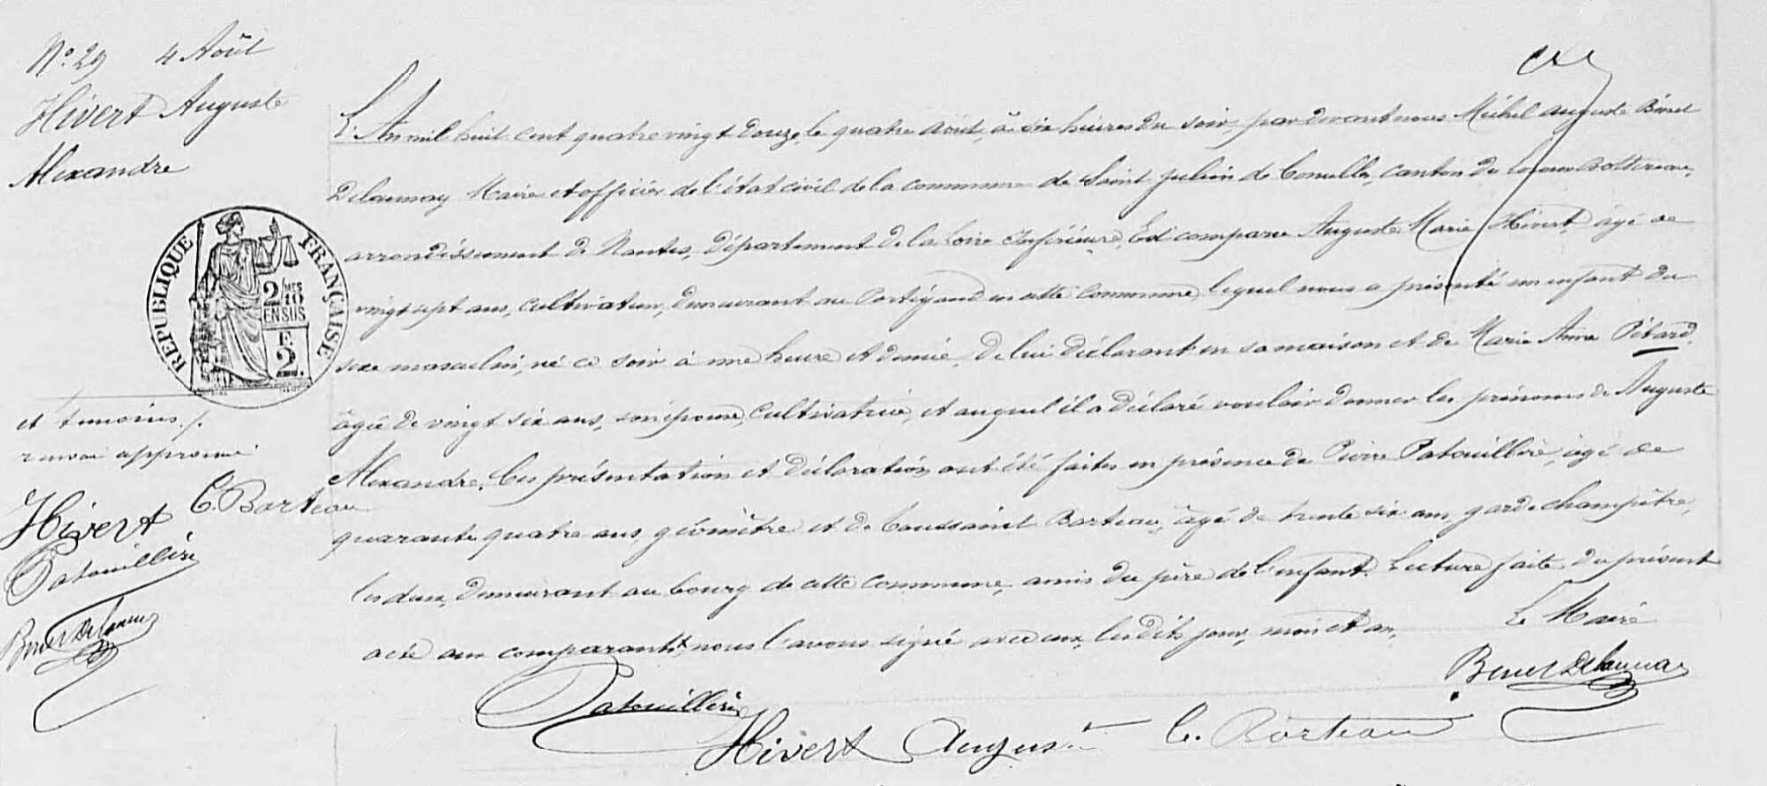 N° 29 4 Août
Hivert Auguste
Alexandre
L'An mil huit cent quatre vingt douze, le quatre Août, à six heures du soir, par devant nous Michel Auguste Binet
Delaunay Maire et officier de l'état civil de la commune de Saint Julien de Concelles, canton du Loroux Bottereau,
arrondissement de Nantes, département de la Loire Inférieure, Est comparu Auguste Marie Hivert âgé de
vingt sept ans, cultivateur, demeurant au en cette commune, lequel nous a présenté un enfant du
sexe masculin, né ce soir à une heure et demie, de lui déclarant en sa maison et de Marie Anne Pétard,
âgée de vingt six ans, son épouse, cultivatrice, et auquel il a déclaré vouloir donner les prénoms de Auguste
Alexandre. Ces présentation et déclaration ont été faites en présence de Pierre Patouillère, âgé de
quarante quatre ans, géomètre et de Toussaint Barteau, âgé de trente six ans, garde champêtre,
les deux, demeurant au bourg de cette commune, amis du père de l'enfant. Lecture faite du présent
acte aux comparants, nous l'avons signé avec eux, lesdits jour, mois et an.
Le Maire
Binet Delaunay
Patouillère
Hivert August
C. Barteau
REPUBLIQUE FRANÇAISE
2/10 EN SUS
2
et témoins ./.
renvoi approuvé
Hivert C. Barteau
Patouillère
Binet Delaunay